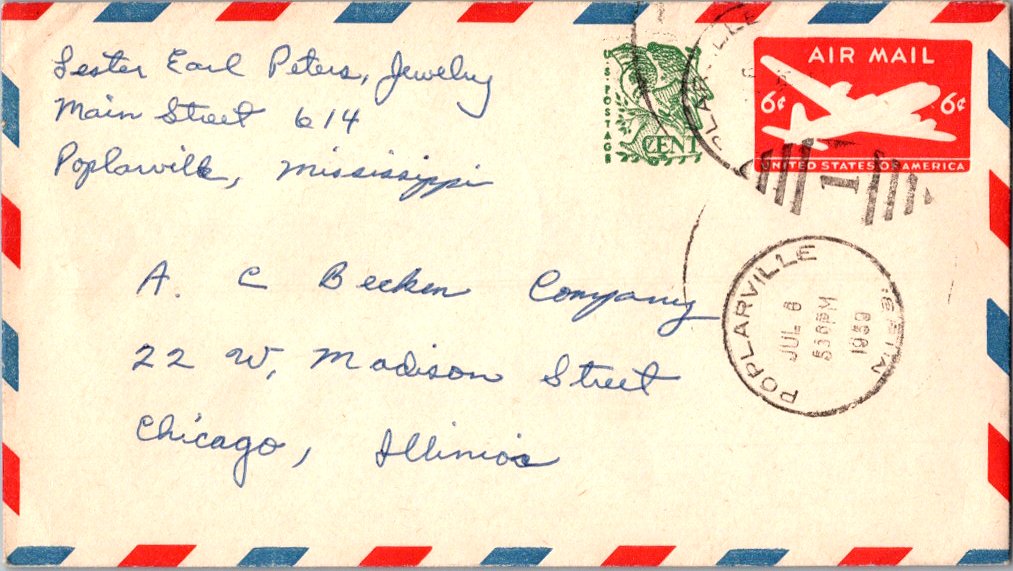 Lester Earl Peters, Jewelry
Main Street 614
Poplarville, Mississippi
U.S. POSTAGE
CENT
AIR MAIL
6¢ 6¢
UNITED STATES OF AMERICA
1
A. C Becken Company
22 W. Madison Street
Chicago, Illinois
POPLARVILLE
JUL 6
530PM